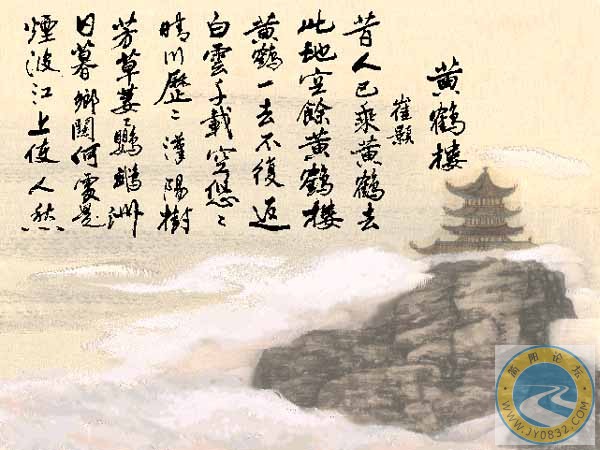 黄鶴樓
崔顥
昔人已乘黄鶴去
此地空餘黄鶴樓
黄鶴一去不復返
白雲千載空悠〻
晴川歷〻漢陽樹
芳草萋〻鸚鵡洲
日暮鄉關何處是
煙波江上使人愁
简阳论坛
WWW.JY0832.COM